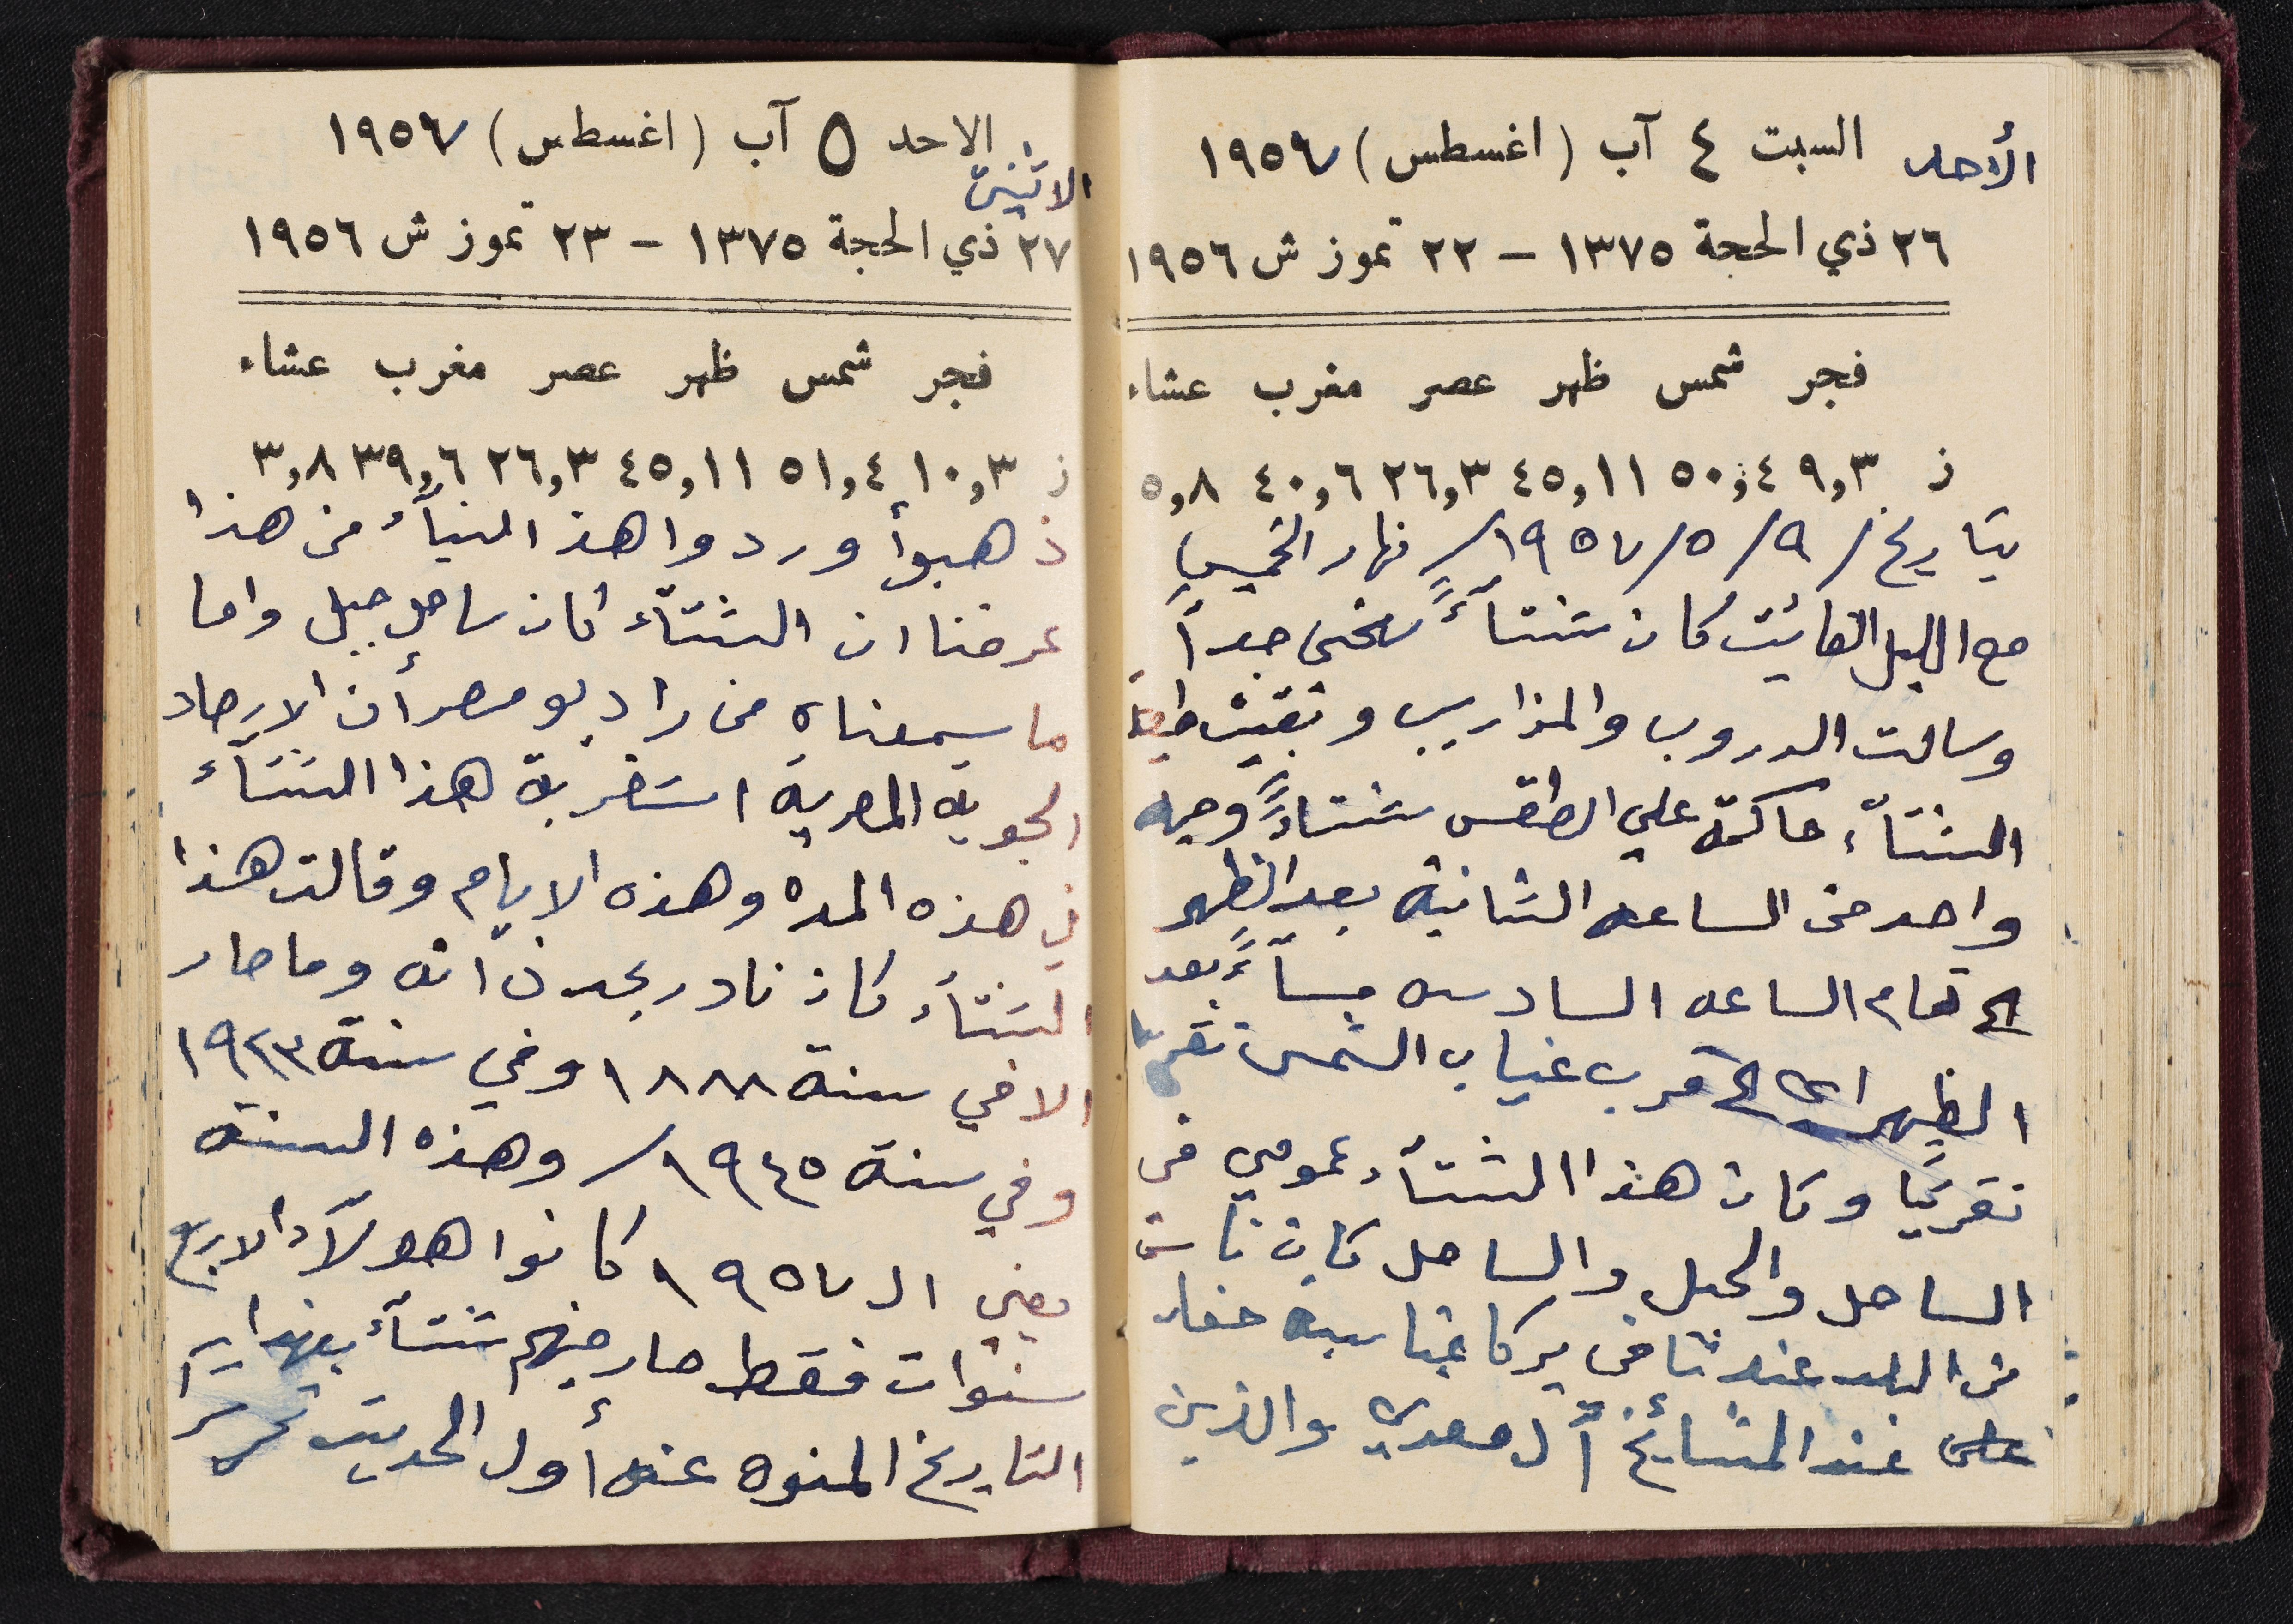 الأحد السبت ٤ آب (اغسطس) ١٩٥٧
٢٦ ذي الحجة ١٣٧٥ – ٢٢ تموز ش ١٩٥٦
فجر شمس ظهر عصر مغرب عشاء
ز ٩,٣ ٥٠,٤ ٤٥,١١ ٢٦,٣ ٤٠,٦ ٥,٨
بتاريخ / ٩ / ٥ / ١٩٥٧ / نهار الخميس
مع الليل الفائيت كان شتآءً سخي جداً
وسالت الدروب والمزاريب وبقيت
الشتآء حاكمة علي الطقس شتاءً وجيه
واحد من الساعه الثانية بعد الظهر
الى تمام الساعه السادسه مسآءً بعد
الظهر اي الى قرب غياب الشمس تقريبًا
تقريبًا وكان هذا الشتآء عمومي في
الساحل والجبل والساحل كان
من البلد عندنا في يركا
على عند المشائخ آل معدي والذين
الاحد ٥ آب (اغسطس) ١٩٥٧
الاثنين
٢٧ ذي الحجة ١٣٧٥ – ٢٣ تموز ش ١٩٥٦
فجر شمس ظهر عصر مغرب عشاء
ز ١٠,٣ ٥١,٤ ٤٥,١١ ٢٦,٣ ٣٩,٦ ٣,٨
ذهبوأ وردوا هذ النبآء من هذا
عرفنا ان الشتآء كان ساحل جبل واما
ما سمعناه من راديو مصر أن الارصاد
الجويه المصريه استغربة هذا الشتآء
في هذه المده وهذه الايام وقالت هذا
الشتآء كان نادر بحد ذاته وما صار
الا في سنة ١٨٨٨ وفي سنة ١٩٢٣
وفي سنة ١٩٤٥ / وهذه السنه
يعني ال ١٩٥٧ كانوا هولآء الاربع
سنوات فقط صار فيهم شتآء بهذا
التاريخ المنوه عنه أول الحديث تحريرًا